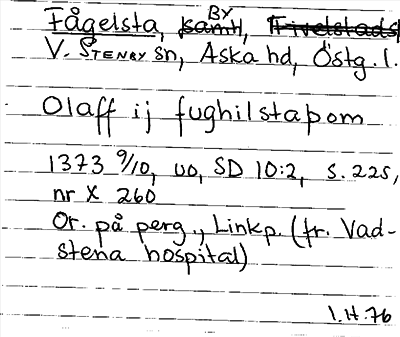 Fågelsta, BY
V. STENBY sn, Aska hd, Östg. l.
Olaff ij fughilstaþom
1373 9/10, uo, SD 10:2, s. 225,
nr X 260
Or. på perg., Linkp. (fr. Vad-
stena hospital)
I.H. 76